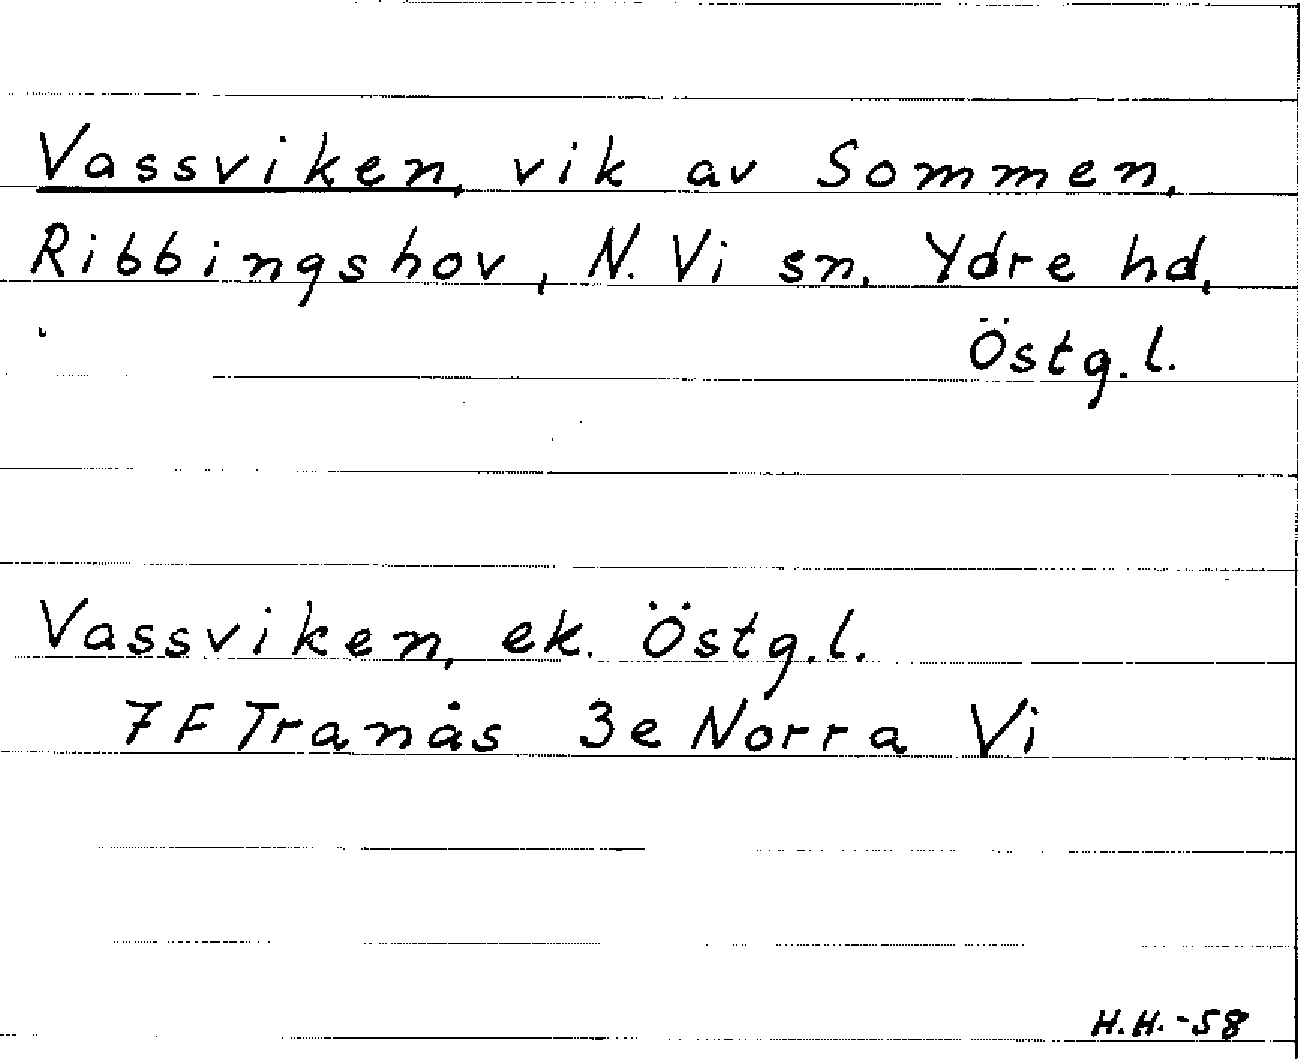 Vassviken, vik av Sommen,
Ribbingshov, N. Vi sn. Ydre hd,
Östg.l.
Vassviken, ek. Östg.l.
7F Tranås 3e Norra Vi
H.H.-58